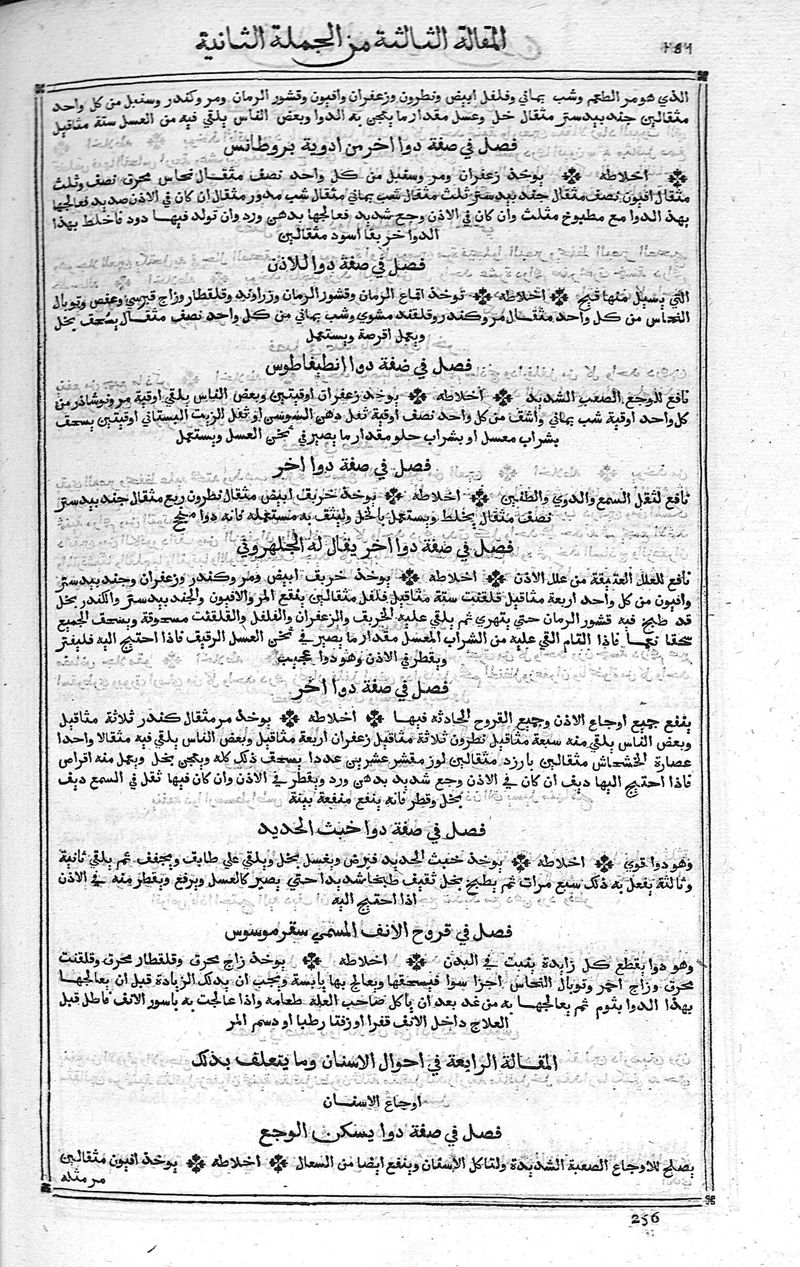 المقالة الثالثة من الجملة الثانية
٢٥٦
الذي هو مر الطعم وشب يماني وفلفل ابيض ونطرون وزعفران وافيون وقشور الرمان ومر وكندر وسنبل من كل واحد
مثقالين جندبيدستر مثقال خل وعسل مقدار ما يعجن به الدوا وبعض الناس يلقي فيه من العسل ستة مثاقيل
فصل في صفة دوا اخر من ادوية بروطانس
اخلاطه يوخذ زعفران ومر وسنبل من كل واحد نصف مثقال نحاس محرق نصف وثلث
مثقال افيون نصف مثقال جندبيدستر ثلث مثقال شب يماني مثقال شب مدور مثقال ان كان في الاذن صديد فعالجها
بهذ الدوا مع مطبوخ مثلث وان كان في الاذن وجع شديد فعالجها بدهن ورد وان تولد فيها دود فاخلط بهذا
الدوا خربقا اسود مثقالين
فصل في صفة دوا للاذن
التي يسيل منها قيح اخلاطه توخذ اقماع الرمان وقشور الرمان وزراوند وقلقطار وزاج قبرسي وعفص وتوبال
النحاس من كل واحد مثقال مر وكندر وقلقند مشوي وشب يماني من كل واحد نصف مثقال يسحف بخل
ويعمل اقرصة ويستعمل
فصل في صفة دوا انطيفاطوس
نافع للوجع الصعب الشديد اخلاطه يوخذ زعفران اوقيتين وبعض الناس يلقي اوقية مر ونوشاذر من
كل واحد اوقية شب يماني واشف من كل واحد نصف اوقية ثفل دهن السوسن او ثفل الزيت البستاني اوقيتين يسحف
بشراب معسل او بشراب حلو مقدار ما يصير في ثخن العسل ويستعمل
فصل في صفة دوا اخر
نافع لثقل السمع والدوي والطنين اخلاطه يوخذ خربف ابيض مثقال نطرون ربع مثقال جندبيدستر
نصف مثقال يخلط ويستعمل بالخل وليثف به مستعمله فانه دوا منجح
فصل في صفة دوا اخر يقال له
نافع للعلل العتيقة من علل الاذن اخلاطه يوخذ خربف ابيض ومر وكندر وزعفران وجندبيدستر
وافيون من كل واحد اربعة مثاقيل قلقنت ستة مثاقيل فلفل مثقالين ينقع المر والافيون والجندبيدستر والكندر بخل
قد طبخ فيه قشور الرمان حتي يتهري ثم يلقي عليه الخربف والزعفران والفلفل والقلقنت مسحوقة ويسحف الجميع
سحقا نعما فاذا التام القي عليه من الشراب المعسل مقدار ما يصير في ثخن العسل الرقيف فاذا احتيج اليه فليفتر
ويقطر في الاذن وهو دوا عجيب
فصل في صفة دوا اخر
ينفع جميع اوجاع الاذن وجميع القروح الحادثه فيها اخلاطه يوخذ مر مثقال كندر ثلاثة مثاقيل
وبعض الناس يلقي منه سبعة مثاقيل نطرون ثلاثة مثاقيل زعفران اربعة مثاقيل وبعض الناس يلقي فيه مثقالا واحدا
عصارة الخشخاش مثقالين بارزد مثقالين لوز مقشر عشرين عددا يسحف ذلك كله ويعجن بخل ويعمل منه اقراص
فاذا احتيج اليها ديف ان كان في الاذن وجع شديد بدهن ورد ويقطر في الاذن وان كان فيها ثقل في السمع ديف
بخل وقطر فانه ينفع منفعة بينة
فصل في صفة دوا خبث الحديد
وهو دوا قوي اخلاطه يوخذ خبث الحديد فيرض ويغسل بخل ويلقي علي طابف ويجفف ثم يلقي ثانية
وثالثة يفعل به ذلك سبع مرات ثم يطبخ بخل ثقيف طبخا شديدا حتي يصير كالعسل ويرفع ويقطر منه في الاذن
اذا احتيج اليه
فصل في قروح الانف المسمي سقرموسوس
وهو دوا يقطع كل زايدة ينبت في البدن اخلاطه يوخذ زاج محرق وقلقطار محرق وقلقنت
محرق وزاج احمر وتوبال النحاس اجزا سوا فيسحقها ويعالج بها يابسة ويجب ان يدلك الزيادة قبل ان يعالجها
بهذا الدوا بثوم ثم يعالجها به من غد بعد ان ياكل صاحب العلة طعامه واذا عالجت به باسور الانف فاطل قبل
العلاج داخل الانف قفرا او زفتا رطبا او دسم المر
المقالة الرابعة في احوال الاسنان وما يتعلف بذلك
اوجاع الاسنان
فصل في صفة دوا يسكن الوجع
يصلح للاوجاع الصعبة الشديدة ولتاكل الاسنان وينفع ايضا من السعال اخلاطه يوخذ افيون مثقالين
مر مثله
256